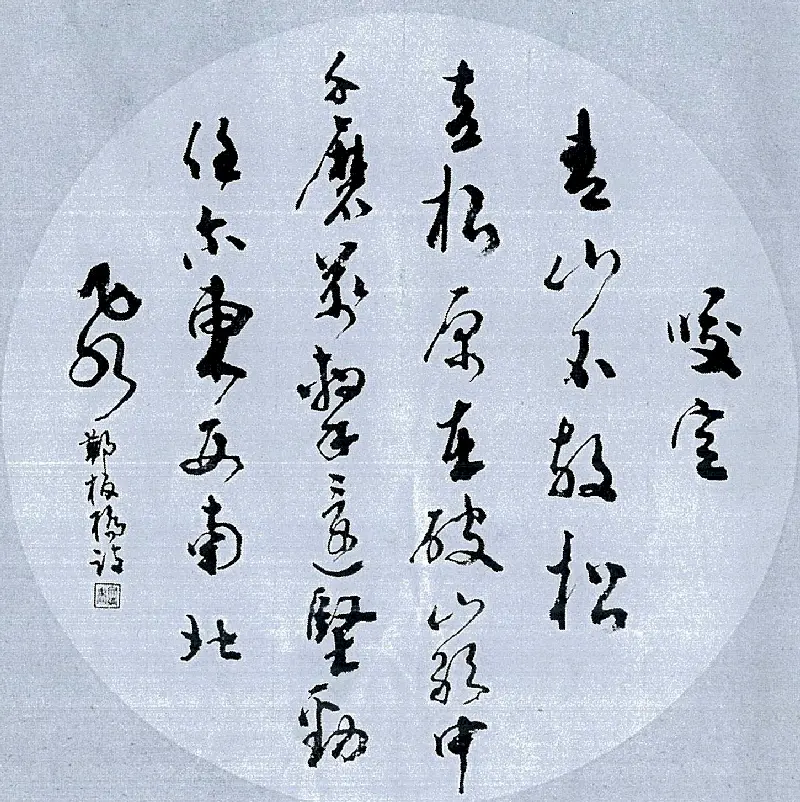 咬定
青山不放松
立根原在破巖中
千磨萬擊還堅勁
任尔東西南北
風
鄭板橋詩